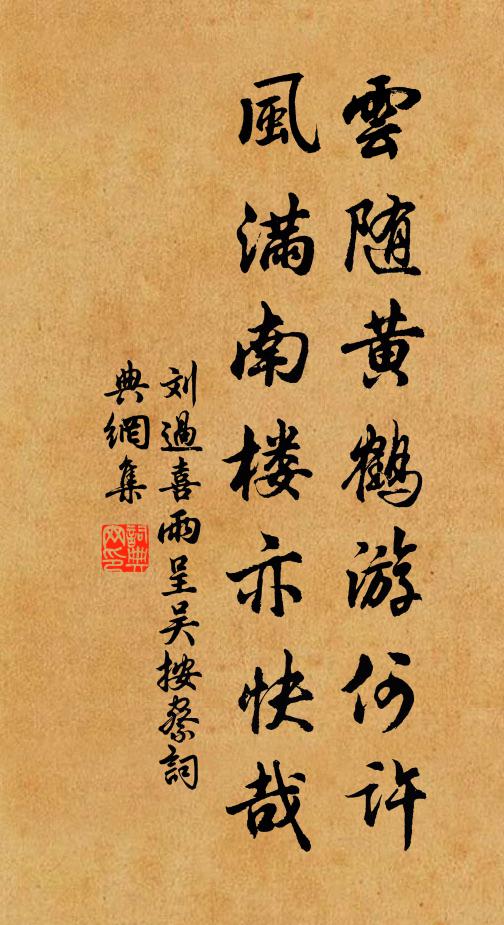 雲随黄鶴游何許
風滿南楼亦快哉
刘過喜雨呈吴按察詞
典網集
詞典
网印